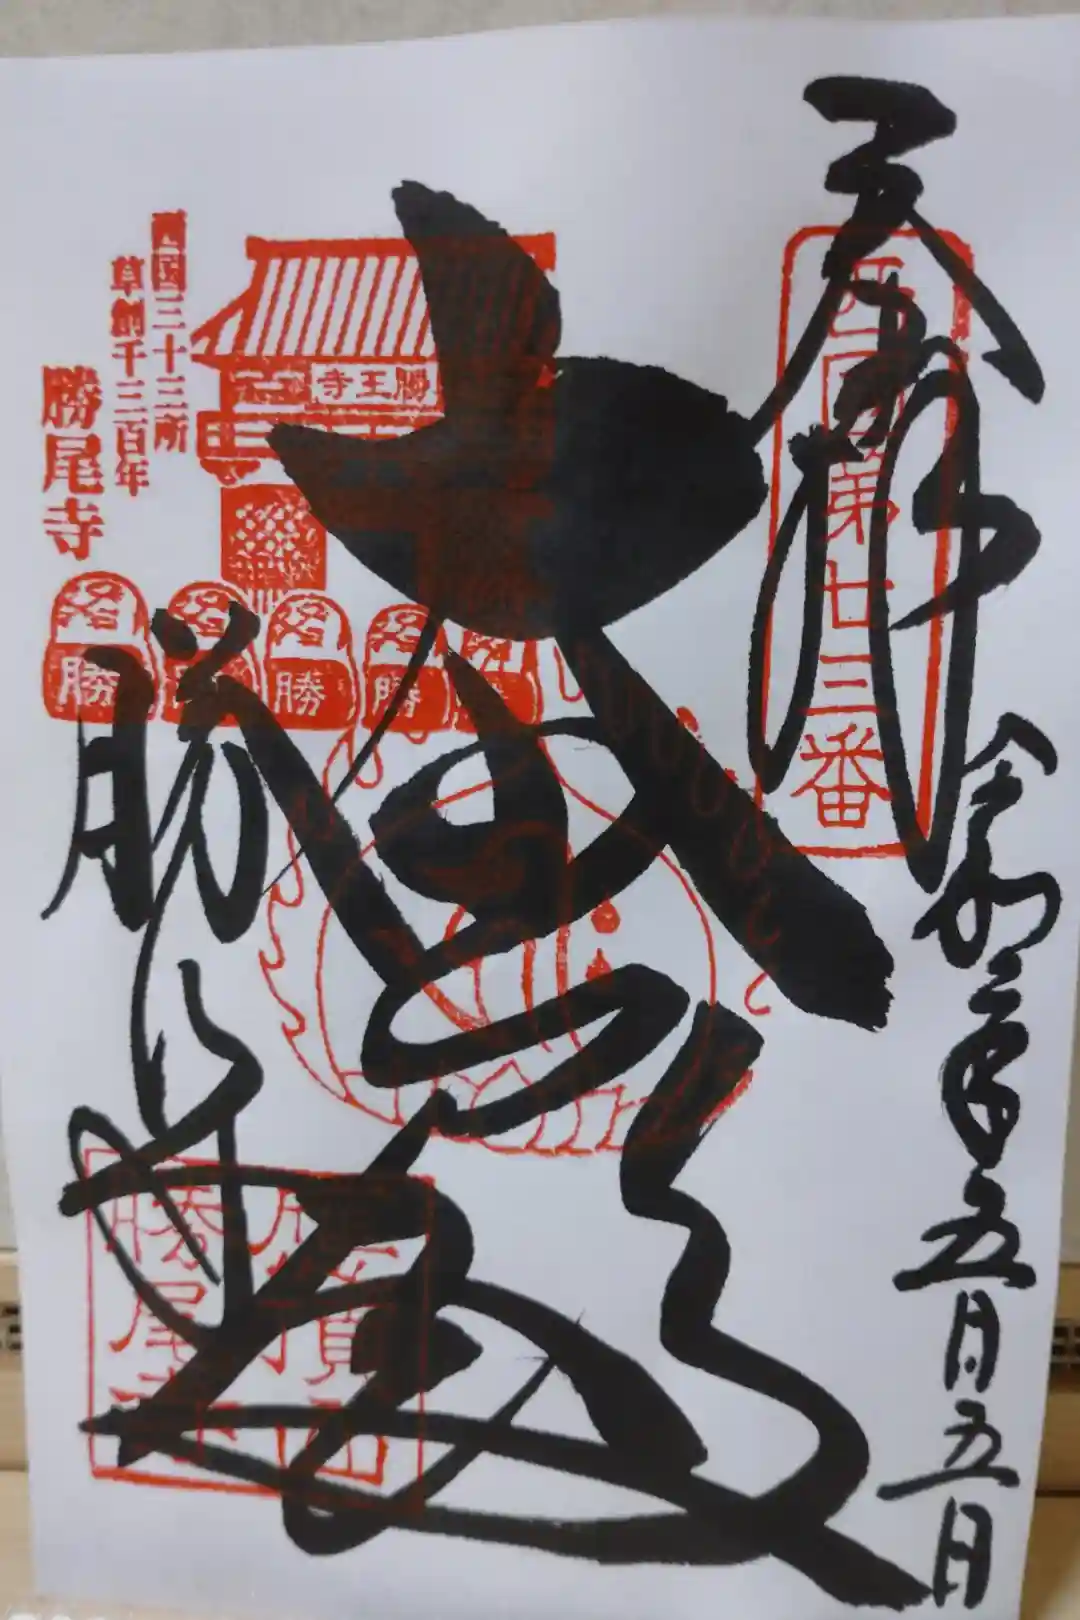 奉拝
西国第廿三番
令和二年五月五日
大悲殿
勝王寺
西国三十三所
草創千三百年
勝尾寺
勝
勝
勝
勝
勝尾寺
勝尾寺